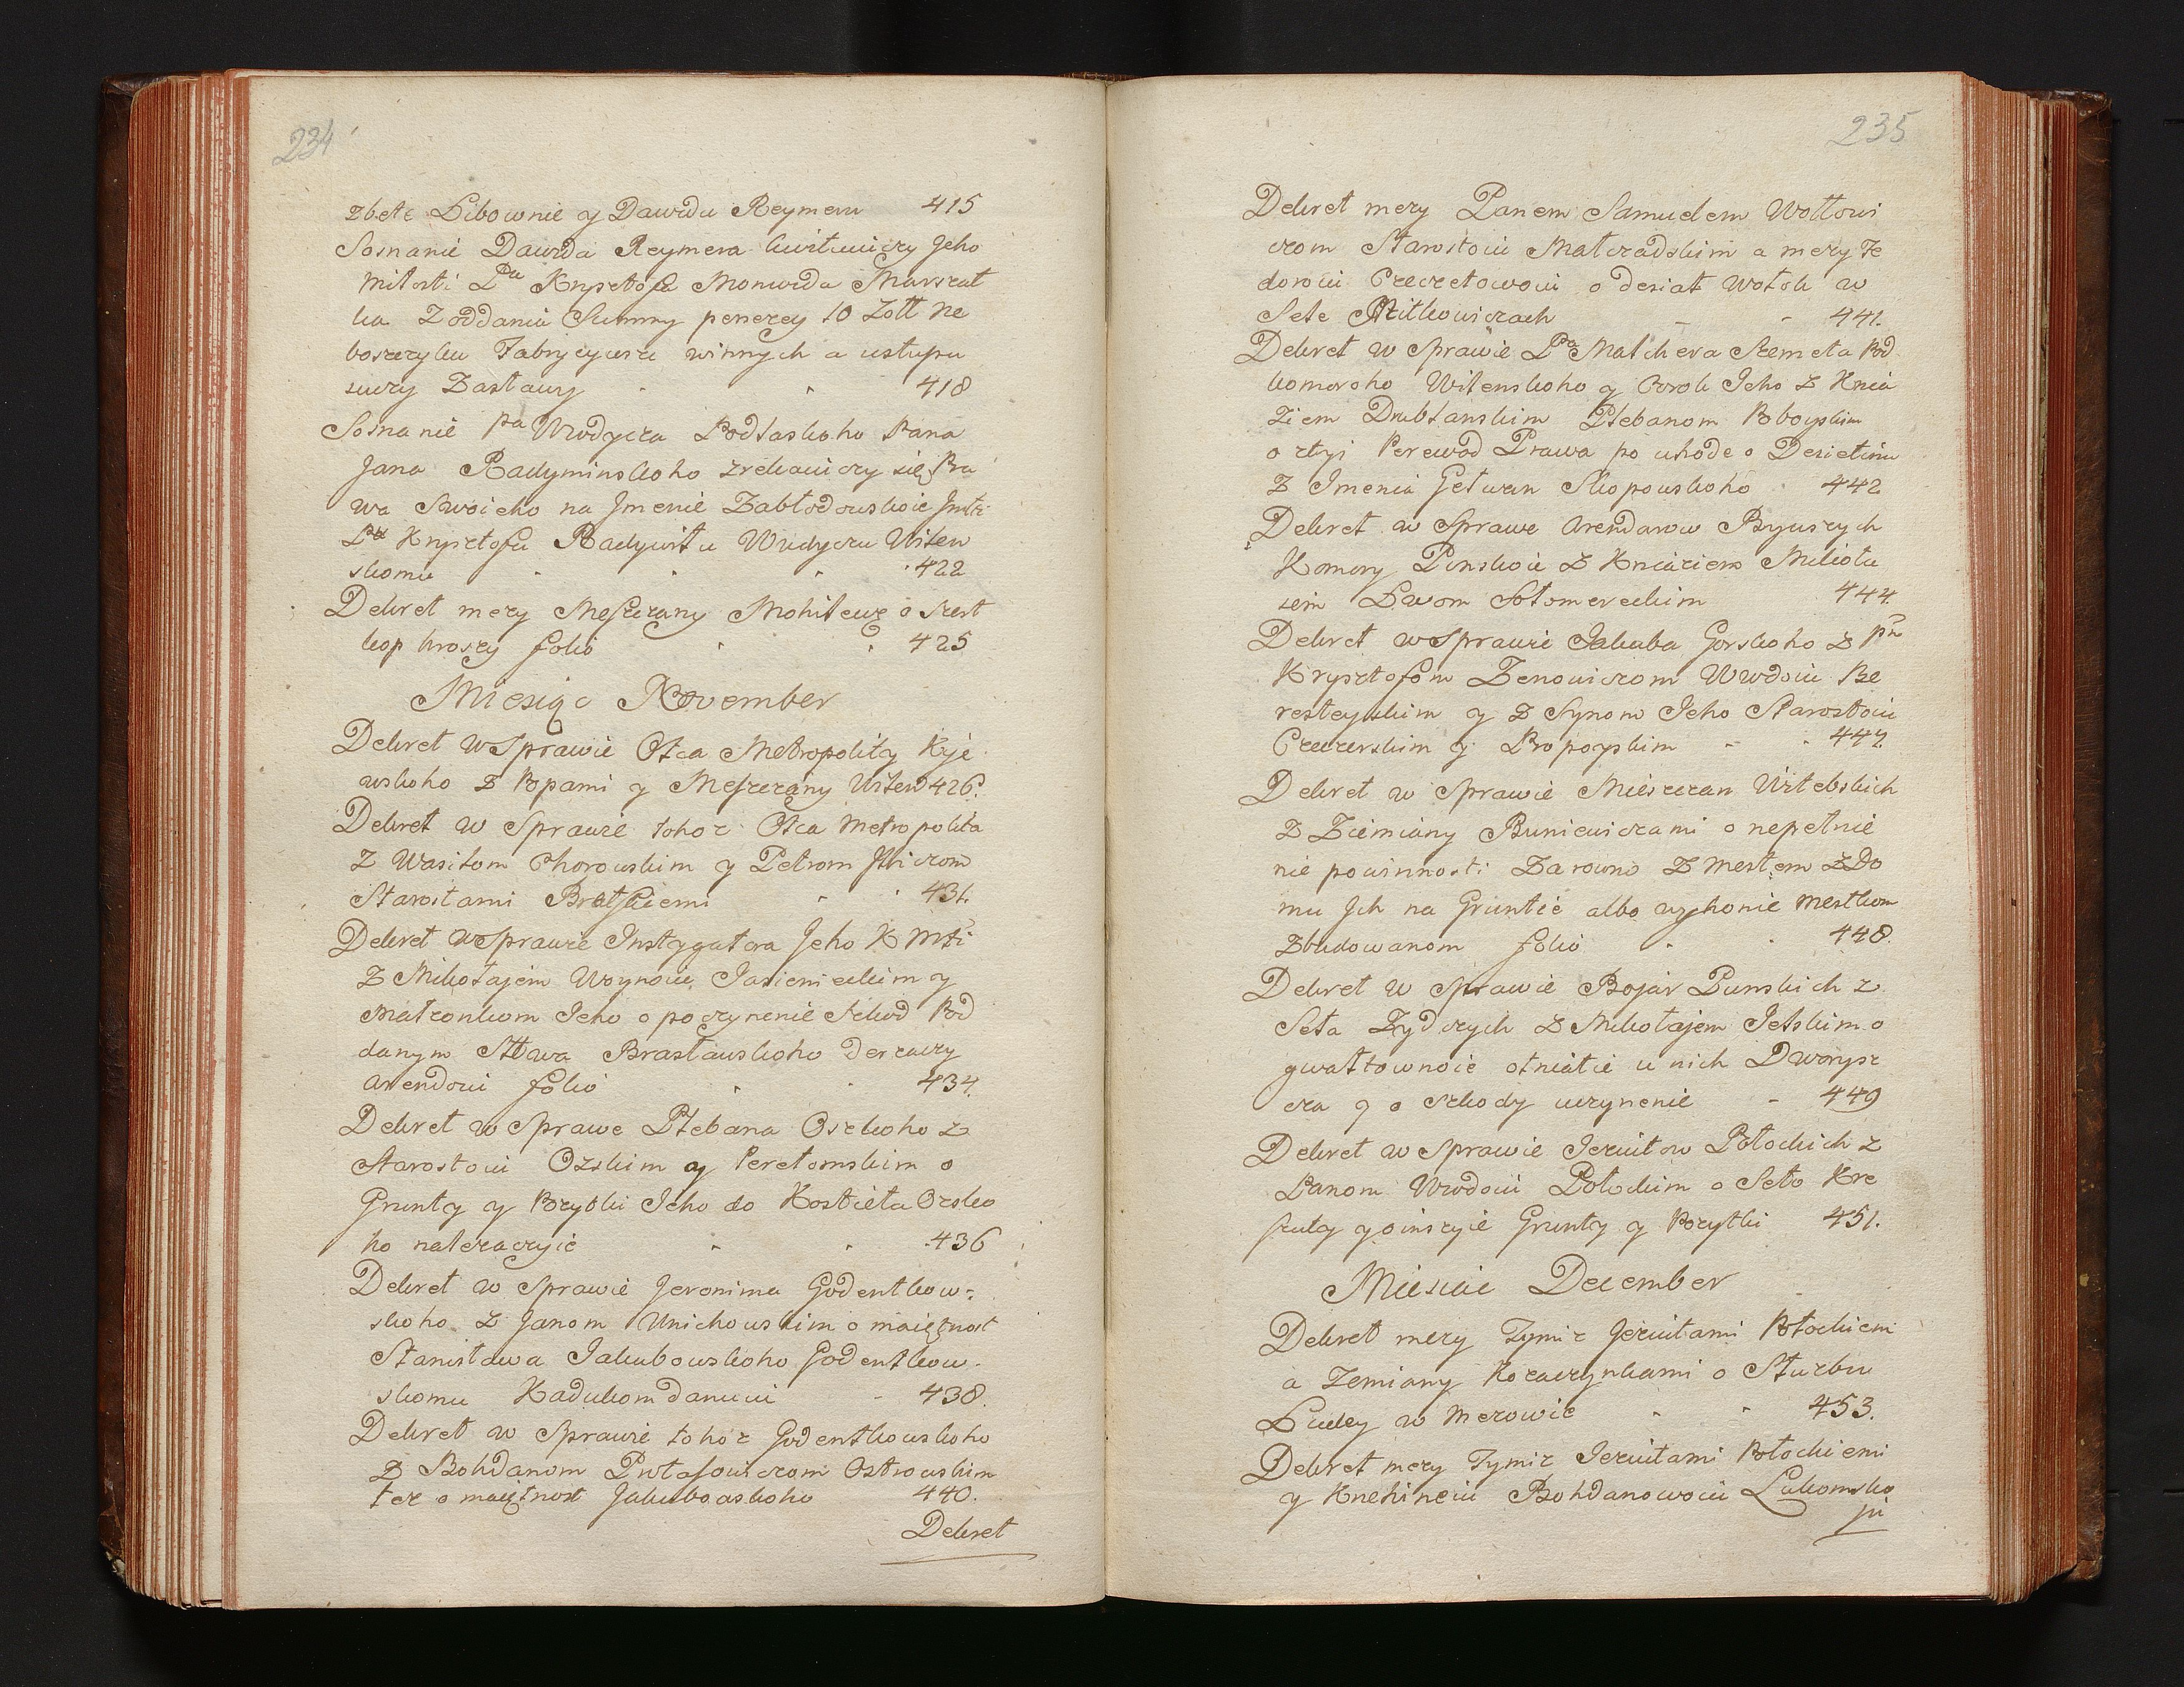 234
zbete Libownie y Dawidu Reymeru 415
Soznanie Dawida Reymera kwitwiczy Jeho
Milosti Pa Krysztofa Monwida Marszał
ka Z oddania Summy penezey 10 Zołł Ne
boszczyku Fabrycyuszu winnych a ustupu
iuczy Zastawy 418
Soznanie Pa Wwodycza Podlaskoho Pana
Jana Radyminskoho zrekaiuczy się Pra
wa Swoieho na Jmenie Zabłodowskoie Jmti
Pu Krysztofu Radywiłu Wwdyczu Wilen
skomu 422
Dekret mezy Meszczany Mohilewz o szest
kop hroszy folio 425
Miesiąc November
Dekret w Sprawie Otca Metropolity Kije
wskoho z Popami y Meszczany Wilen 426.
Dekret w Sprawie tohoz Otca Metropolita
Z Wasilom Chorowskim y Petrom Iliczom
Starostami Bratskiemi 431.
Dekret w Sprawie Instygatora Jeho K Mti
Z Mikołajem Woynoiu Jasienieckim y
Małzonkom Jeho o poczynenie szkod Pod
danym Sttwa Brasławskoho derzaczy
Arendoiu folio 434.
Dekret w Sprawe Plebana Ozskoho z
Starostoiu Ozskim y Perełomskim o
Grunty y Pozytki Jeho do Kostieła Ozsko
ho nalezaczyie 436
Dekret w Sprawie Jeronima Godentkow=
skoho Z Janom Unichowskim o maiętnost
Stanisława Jakubowskoho Godentkow-
skomu Kadukom danuiu 438.
Dekret w Sprawie tohoz Godentkowskoho
Z Bohdanom Protasowiczom Ostrowskim
tez o maiętnost Jakubowskoho 440.
Dekret
235
Dekret mezy Panem Samuelem Wołłowi
czom Starostoiu Matczadskim a mezy Fe
doroiu Czeczetowoiu o desiat Wołok w
Sele Mitkowiczach 441.
Dekret w Sprawie Pa Malchera Szemeta Pod
komoroho Wilenskoho y Corok Jeho z Knia
Ziem Drublanskim Plebanom Poboyskim
o złyi Perewod Prawa po uhode o Desietinu
Z Imenia Getwan Skopowskoho 442
Dekret w Sprawe Arendarow Bywszych
Komory Pinskoie Z Kniaziem Mikołu
iem Lwom Sołomereckim 444.
Dekret w Sprawie Jakuba Gorskoho z Pn
Krysztofom Zenowiczom Wwdoiu Be
resteyskim y Z Synom Jeho Starostoiu
Czeczerskim y Propoyskim 447.
Dekret w Sprawie Mieszczan Witebskich
Z Ziemiany Buniewiczami o nepełnie
nie powinnosti Zarowno Z Mestem z Do
mu Jch na Gruntie albo wyhonie Mestkom
Zbudowanom folio 448.
Dekret w Sprawie Bojar Punskich z
Seła Zydczych z Mikołajem Jelskim o
gwałtownoie otniatie u nich Dworysz
cza y o szkody uczynenie 449
Dekret w Sprawie Jezuitow Połockich z
Panom Wwodoiu Połockim o Seło Kre
szuty y oinszyie Grunty y Pozytki 451.
Miesiac December
Dekret mezy Tymiz Jezuitami Połockiemi
a Zemiany Kozaczynkami o Słuzbu
Ludey w Mezowie 453.
Dekret mezy Tymiz Jezuitami Połockiemi
y Knehineiu Bohdanowoiu Lukomsko
ju